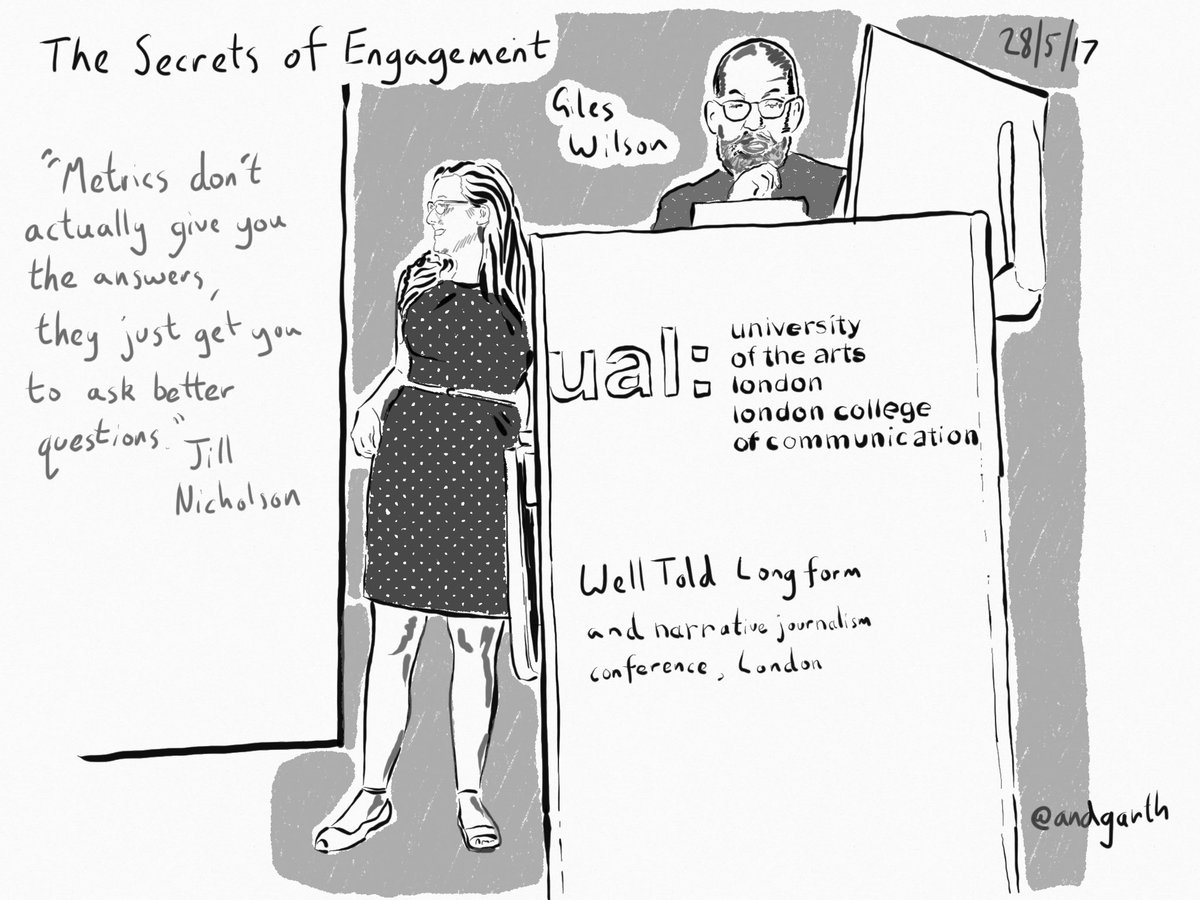 The Secrets of Engagement
28/5/17
Giles
Wilson
"Metrics don't
actually give you
the answers,
they just get you
to ask better
questions."
Jill
Nicholson
ual:
university
of the arts
london
london college
of communication
Well Told Longform
and narrative journalism
conference, London
@andgarth